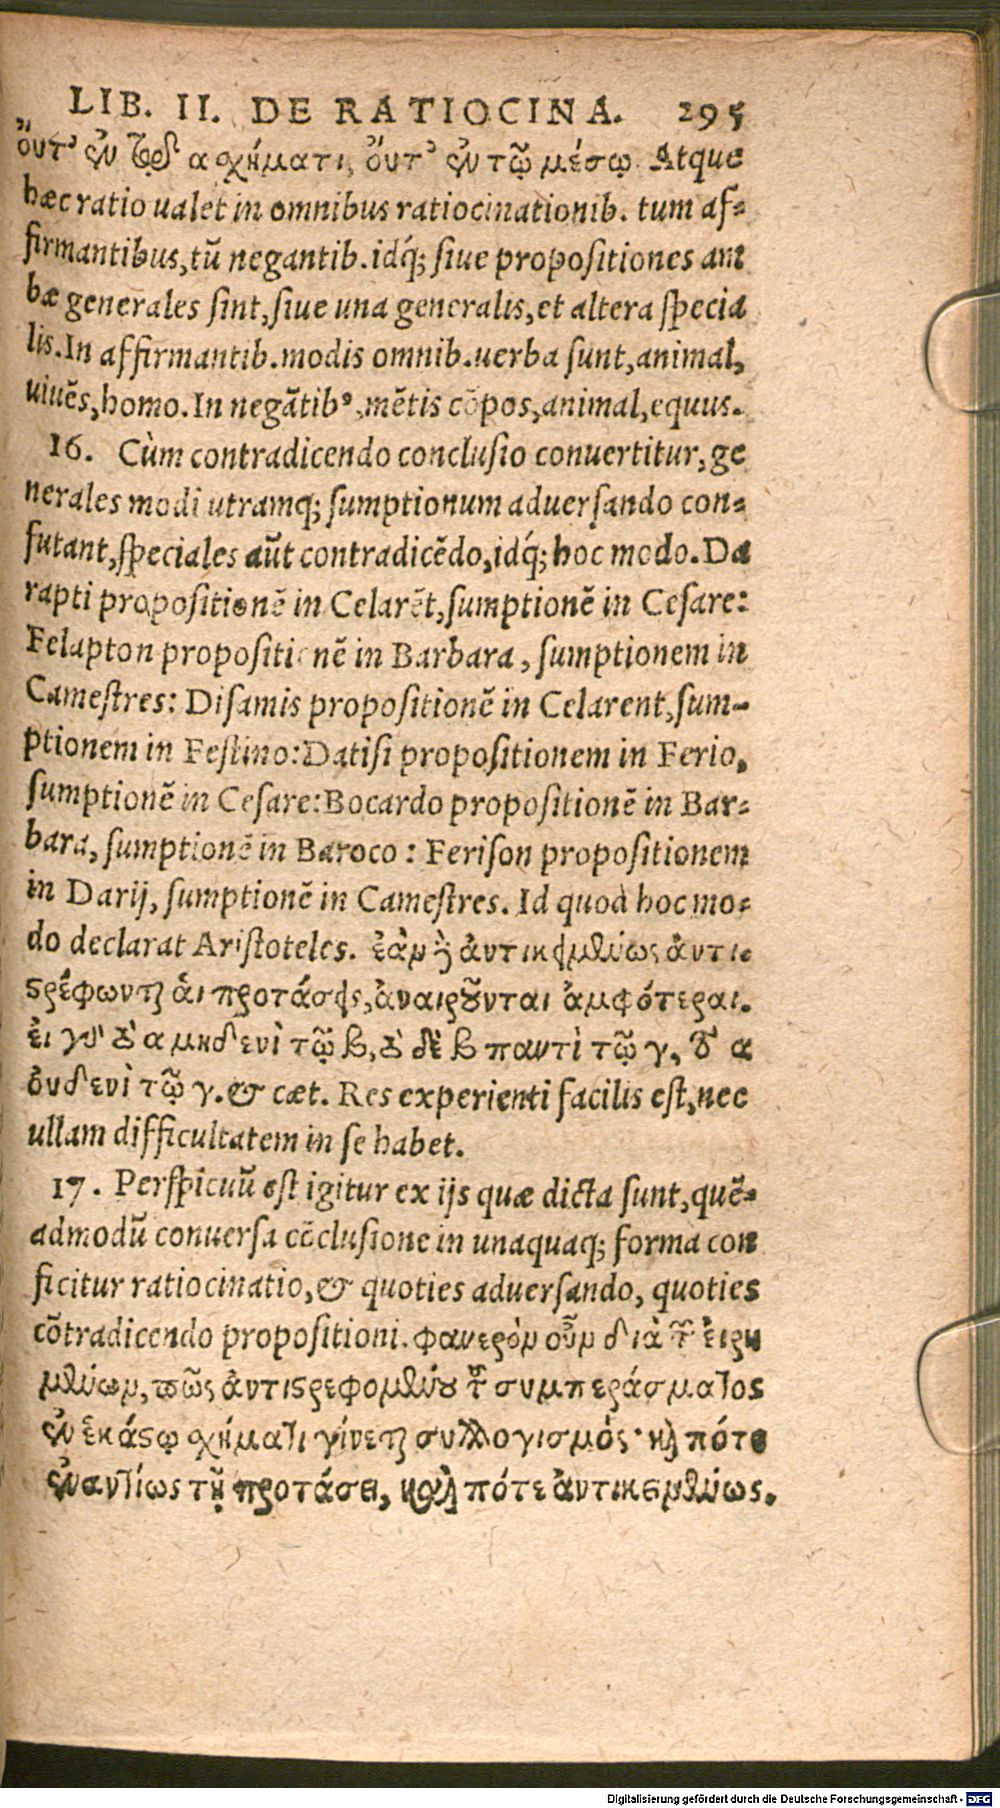 LIB. II. DE RATIOCINA. 295
οὔτ' ἐν τῷ α σχήματι, οὔτ' ἐν τῷ μέσῳ. Atque
hæc ratio ualet in omnibus ratiocinationib. tum af-
firmantibus, tũ negantib. idq́; siue propositiones am
bæ generales sint, siue una generalis, et altera specia
lis. In affirmantib. modis omnib. uerba sunt, animal,
uiuẽs, homo. In negãtibꝰ, mẽtis cõpos, animal, equus.
16. Cùm contradicendo conclusio conuertitur, ge
nerales modi utramq; sumptionum aduersando con-
futant, speciales aũt contradicẽdo, idq́; hoc modo. Da
rapti propositionẽ in Celarẽt, sumptionẽ in Cesare:
Felapton propositionẽ in Barbara, sumptionem in
Camestres: Disamis propositionẽ in Celarent, sum-
ptionem in Festino: Datisi propositionem in Ferio,
sumptionẽ in Cesare: Bocardo propositionẽ in Bar-
bara, sumptionẽ in Baroco: Ferison propositionem
in Darij, sumptionẽ in Camestres. Id quod hoc mo-
do declarat Aristoteles. ἐὰν δ' ἀντικειμένως ἀντι-
στρέφωνται ἁι προτάσεις, ἀναιροῦνται ἀμφότεραι.
ἐι γὰρ τὸ α μηδενὶ τῷ β, τὸ δὲ β παντὶ τῷ γ, τὸ α
ὀυδενὶ τῷ γ. & cæt. Res experienti facilis est, nec
ullam difficultatem in se habet.
17. Perspicuũ est igitur ex ijs quæ dicta sunt, quẽ-
admodũ conuersa cõclusione in unaquaq; forma con
ficitur ratiocinatio, & quoties aduersando, quoties
cõtradicendo propositioni. φανερὸν οὖν διὰ τῶν ἐιρη
μένων, πῶς ἀντιστρεφομένου τοῦ συμπεράσματος
ἐν ἑκάστῳ σχήματι γίνεται συλλογισμός· καὶ πότε
ἐναντίως τῇ προτάσει, καὶ πότε ἀντικειμένως.
Digitalisierung gefördert durch die Deutsche Forschungsgemeinschaft - DFG